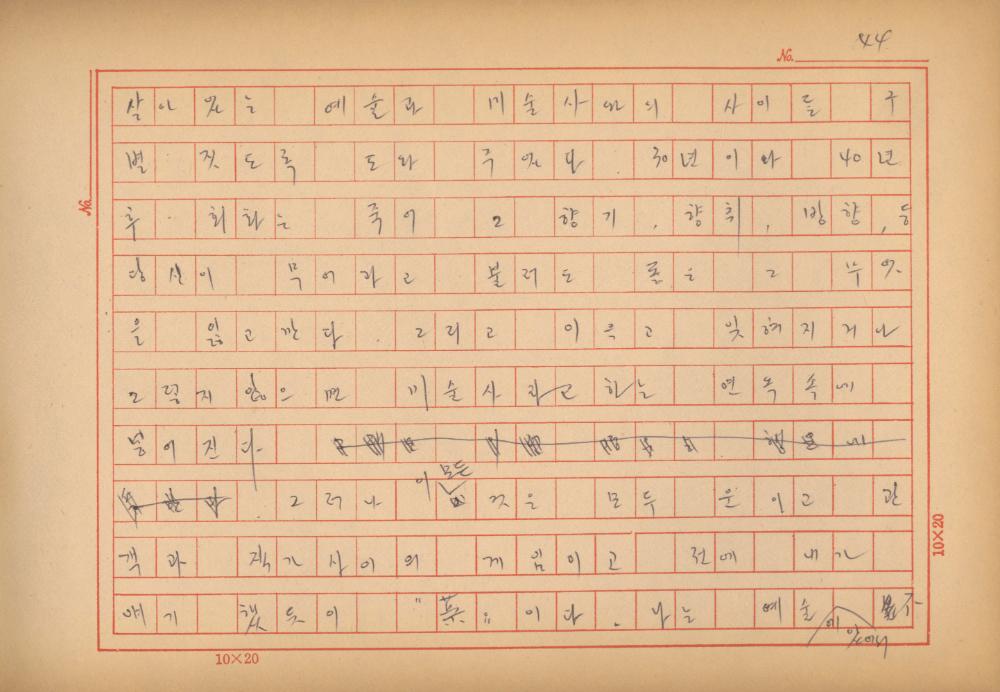 44
No.
살아 있는 예술과 미술사와의 사이를 구
별 짓도록 도와 주었다. 30년이나 40년
후. 회화는 죽어 그 향기, 향취, 방향, 등
당신이 무어라고 불러도 좋은 그 무엇
을 잃고 간다. 그리고 이윽고 잊혀지거나
그렇지 않으면 미술사라고 하는 연옥속에
넣어진다.
그러나 이 모든 것은 모두 운이고 관
객과 작가 사이의 게임이고 전에 내가
얘기 했듯이 "薬" 이다. 나는 예술에 있어서
No.
10×20
10×20